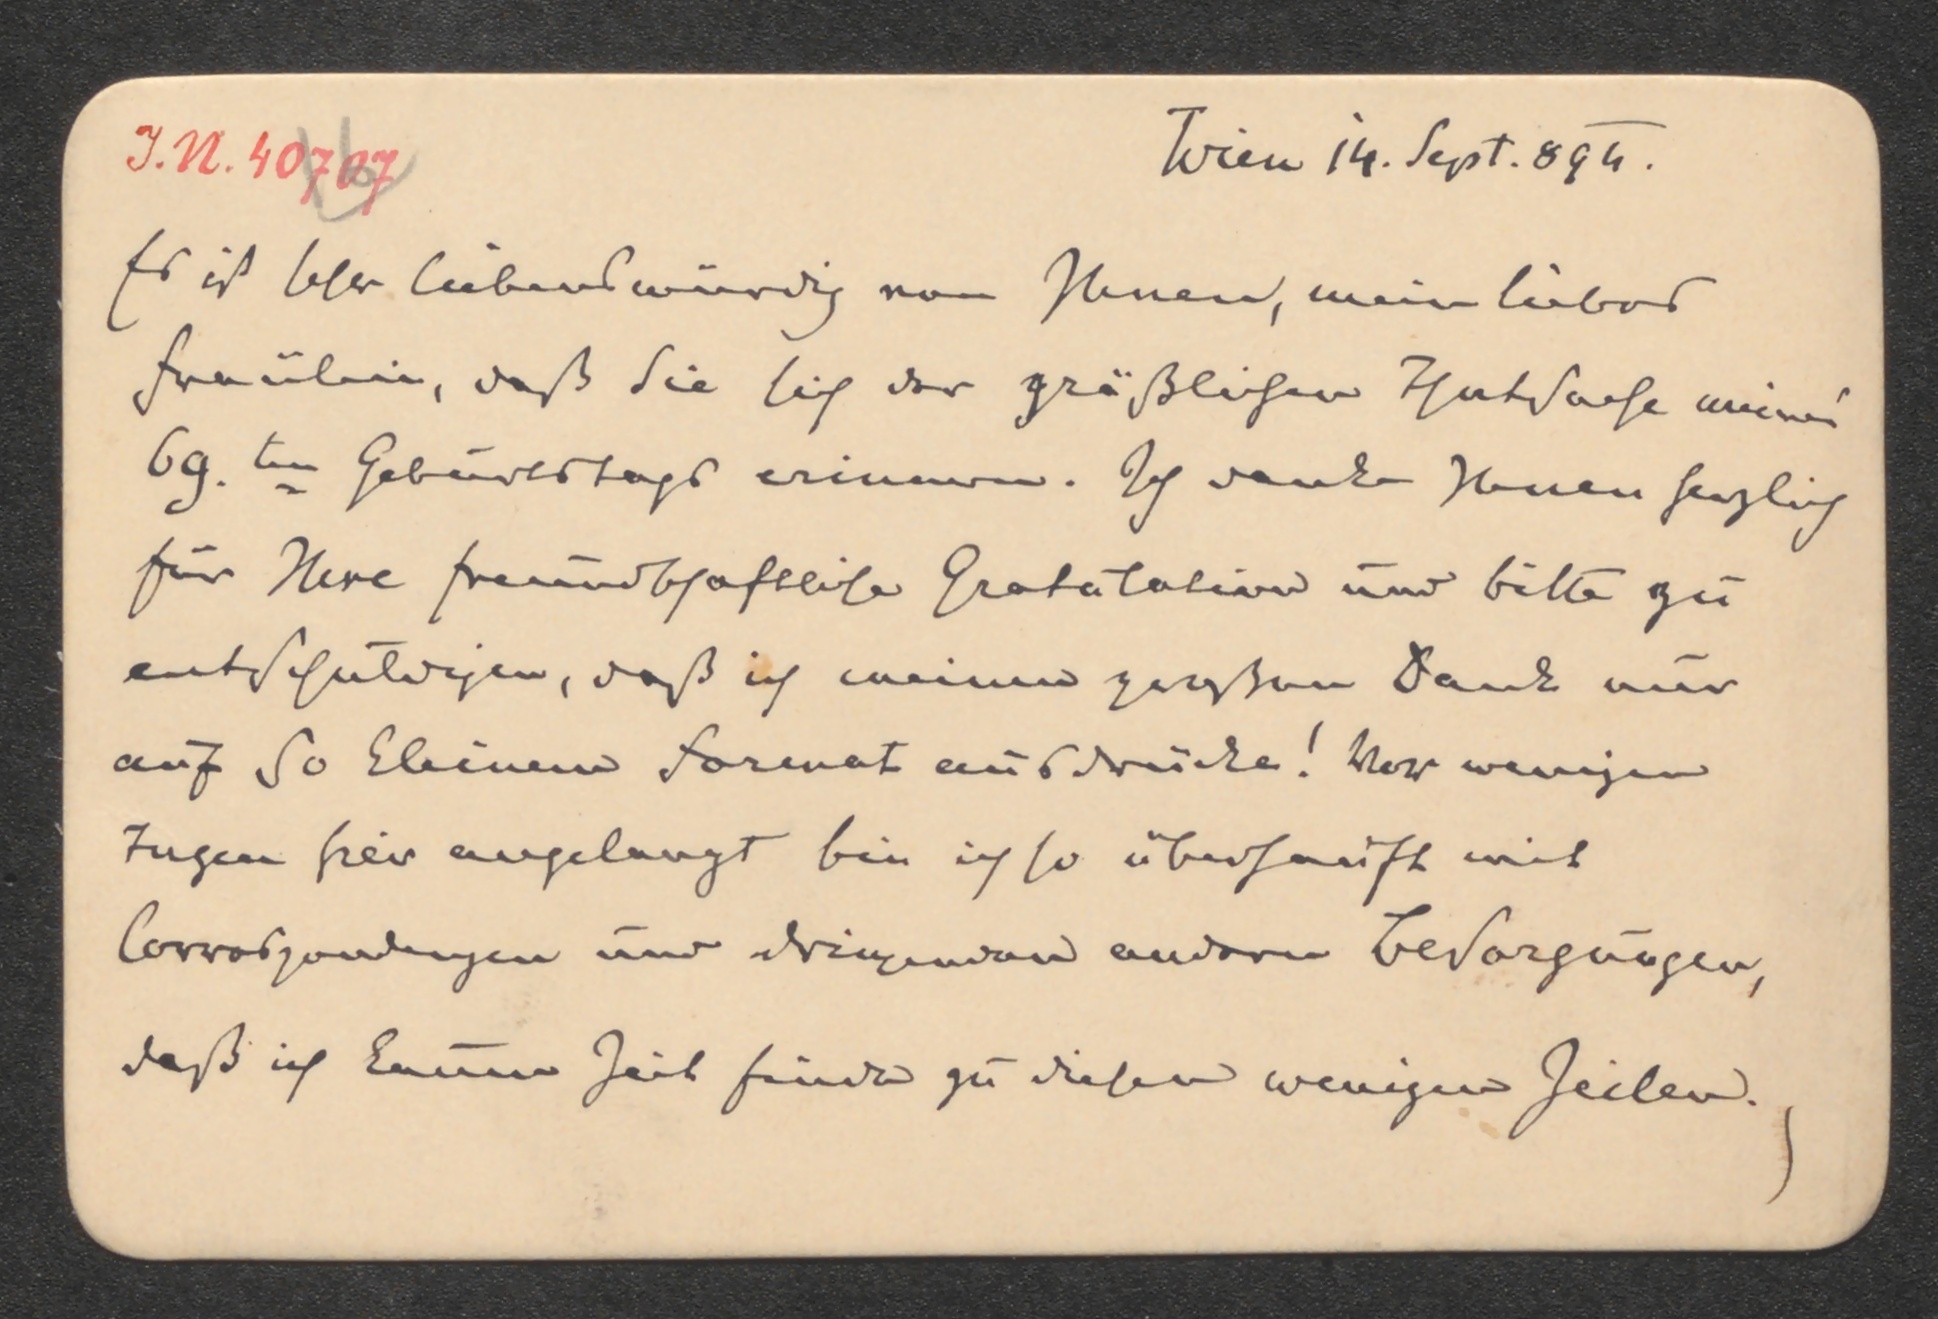 J.N. 40707
Wien 14. Sept. 894.
Es ist sehr liebenswürdig von Ihnen, mein liebes
Fräulein, daß Sie sich der gräßlichen Thatsache meines
69.ten Geburtstags erinnern. Ich danke Ihnen herzlich
für Ihre freundschaftliche Gratulation und bitte zu
entschuldigen, daß ich meinen großen Dank nur
auf so kleinem Format ausdrücke! Vor wenigen
Tagen hier angelangt bin ich so überhäuft mit
Correspondenzen und dringenden andern Besorgungen,
daß ich kaum Zeit finde zu diesen wenigen Zeilen.